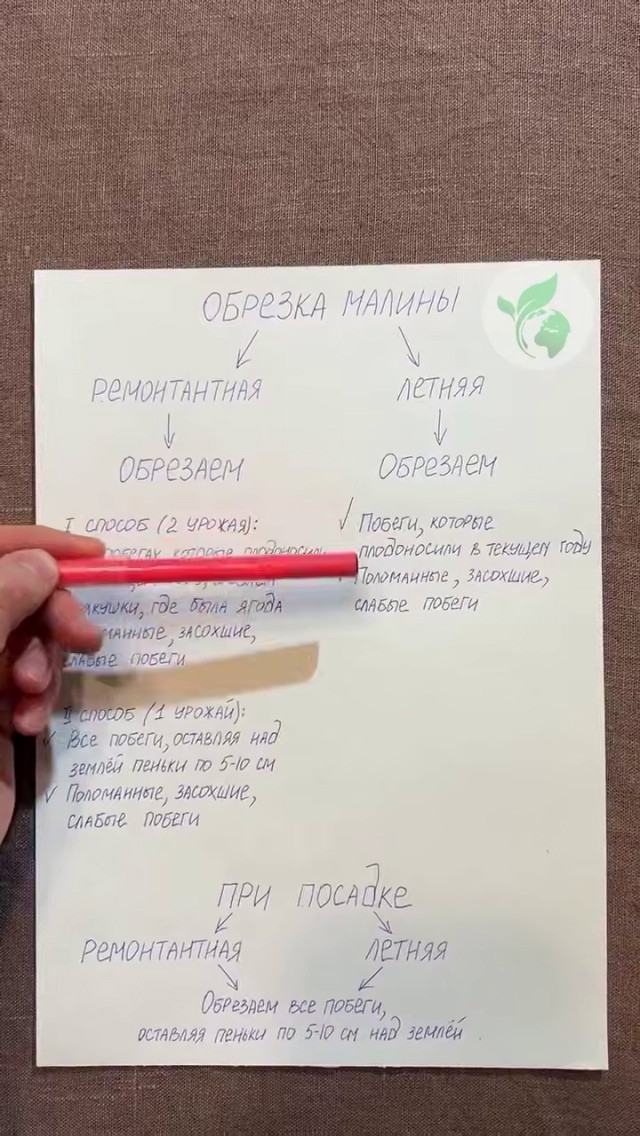 ОБРЕЗКА МАЛИНЫ
РЕМОНТАНТНАЯ
ОБРЕЗАЕМ
I СПОСОБ (2 УРОЖАЯ):
ПОБЕГАХ КОТОРЫЕ ПЛОДОНОСИЛИ
ГДЕ БЫЛА ЯГОДА
ЗАСОХШИЕ,
СЛАБЫЕ ПОБЕГИ
II СПОСОБ (1 УРОЖАЙ):
✓ ВСЕ ПОБЕГИ, ОСТАВЛЯЯ НАД
ЗЕМЛЁЙ ПЕНЬКИ ПО 5-10 СМ
✓ ПОЛОМАННЫЕ, ЗАСОХШИЕ,
СЛАБЫЕ ПОБЕГИ
ЛЕТНЯЯ
ОБРЕЗАЕМ
✓ ПОБЕГИ, КОТОРЫЕ
ПЛОДОНОСИЛИ В ТЕКУЩЕМ ГОДУ
ПОЛОМАННЫЕ, ЗАСОХШИЕ,
СЛАБЫЕ ПОБЕГИ
ПРИ ПОСАДКЕ
РЕМОНТАНТНАЯ
ЛЕТНЯЯ
ОБРЕЗАЕМ ВСЕ ПОБЕГИ,
ОСТАВЛЯЯ ПЕНЬКИ ПО 5-10 СМ НАД ЗЕМЛЁЙ